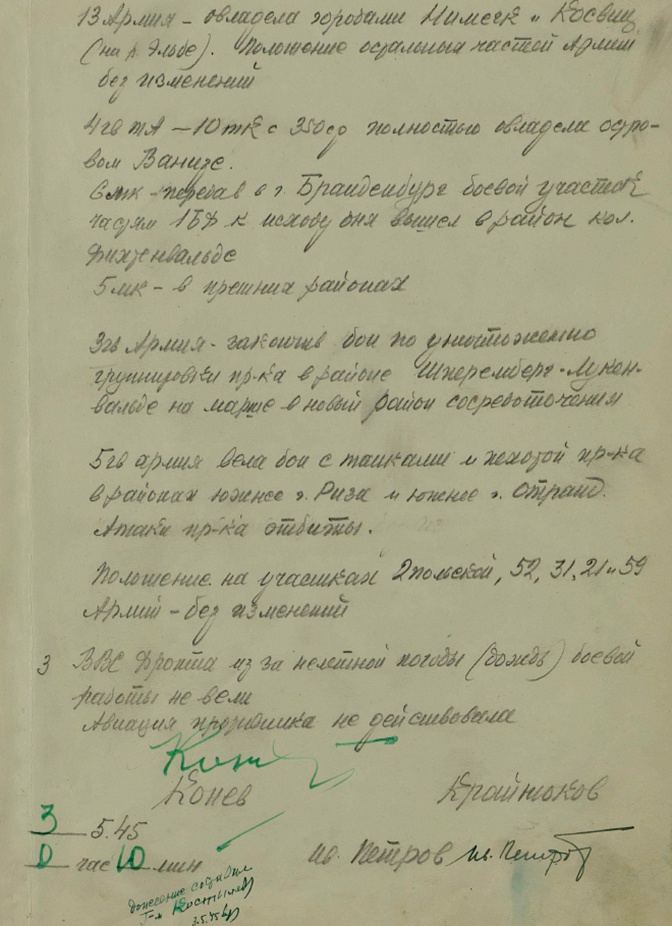 13 Армия - овладела городами Нимегк и Косвиг
(на р. Эльбе). Положение остальных частей Армии
без изменений
4 гв ТА - 10тк с 350сд полностью овладела остро-
вом Ванизе.
6мк - передав в г. Бранденбург боевой участок
частям 1БФ к исходу дня вышел в район кол.
Фихтенвальде
5мк - в прежних районах
3гв Армия - закончив бои по уничтожению
группировки пр-ка в районе Шперемберг - Лукен-
вальде на марше в новый район сосредоточения
5гв армия вела бои с танками и пехотой пр-ка
в районах южнее г. Риза и южнее г. Отранд.
Атаки пр-ка отбиты.
Положение на участках 2польской, 52, 31, 21 и 59
Армий - без изменений
3 ВВС Фронта из за нелетной погоды (дождь) боевой
работы не вели
Авиация противника не действовала
Конев Крайнюков
3 5.45
0 час 10 мин Ив. Петров Ив. Петров
донесение
3.5.45